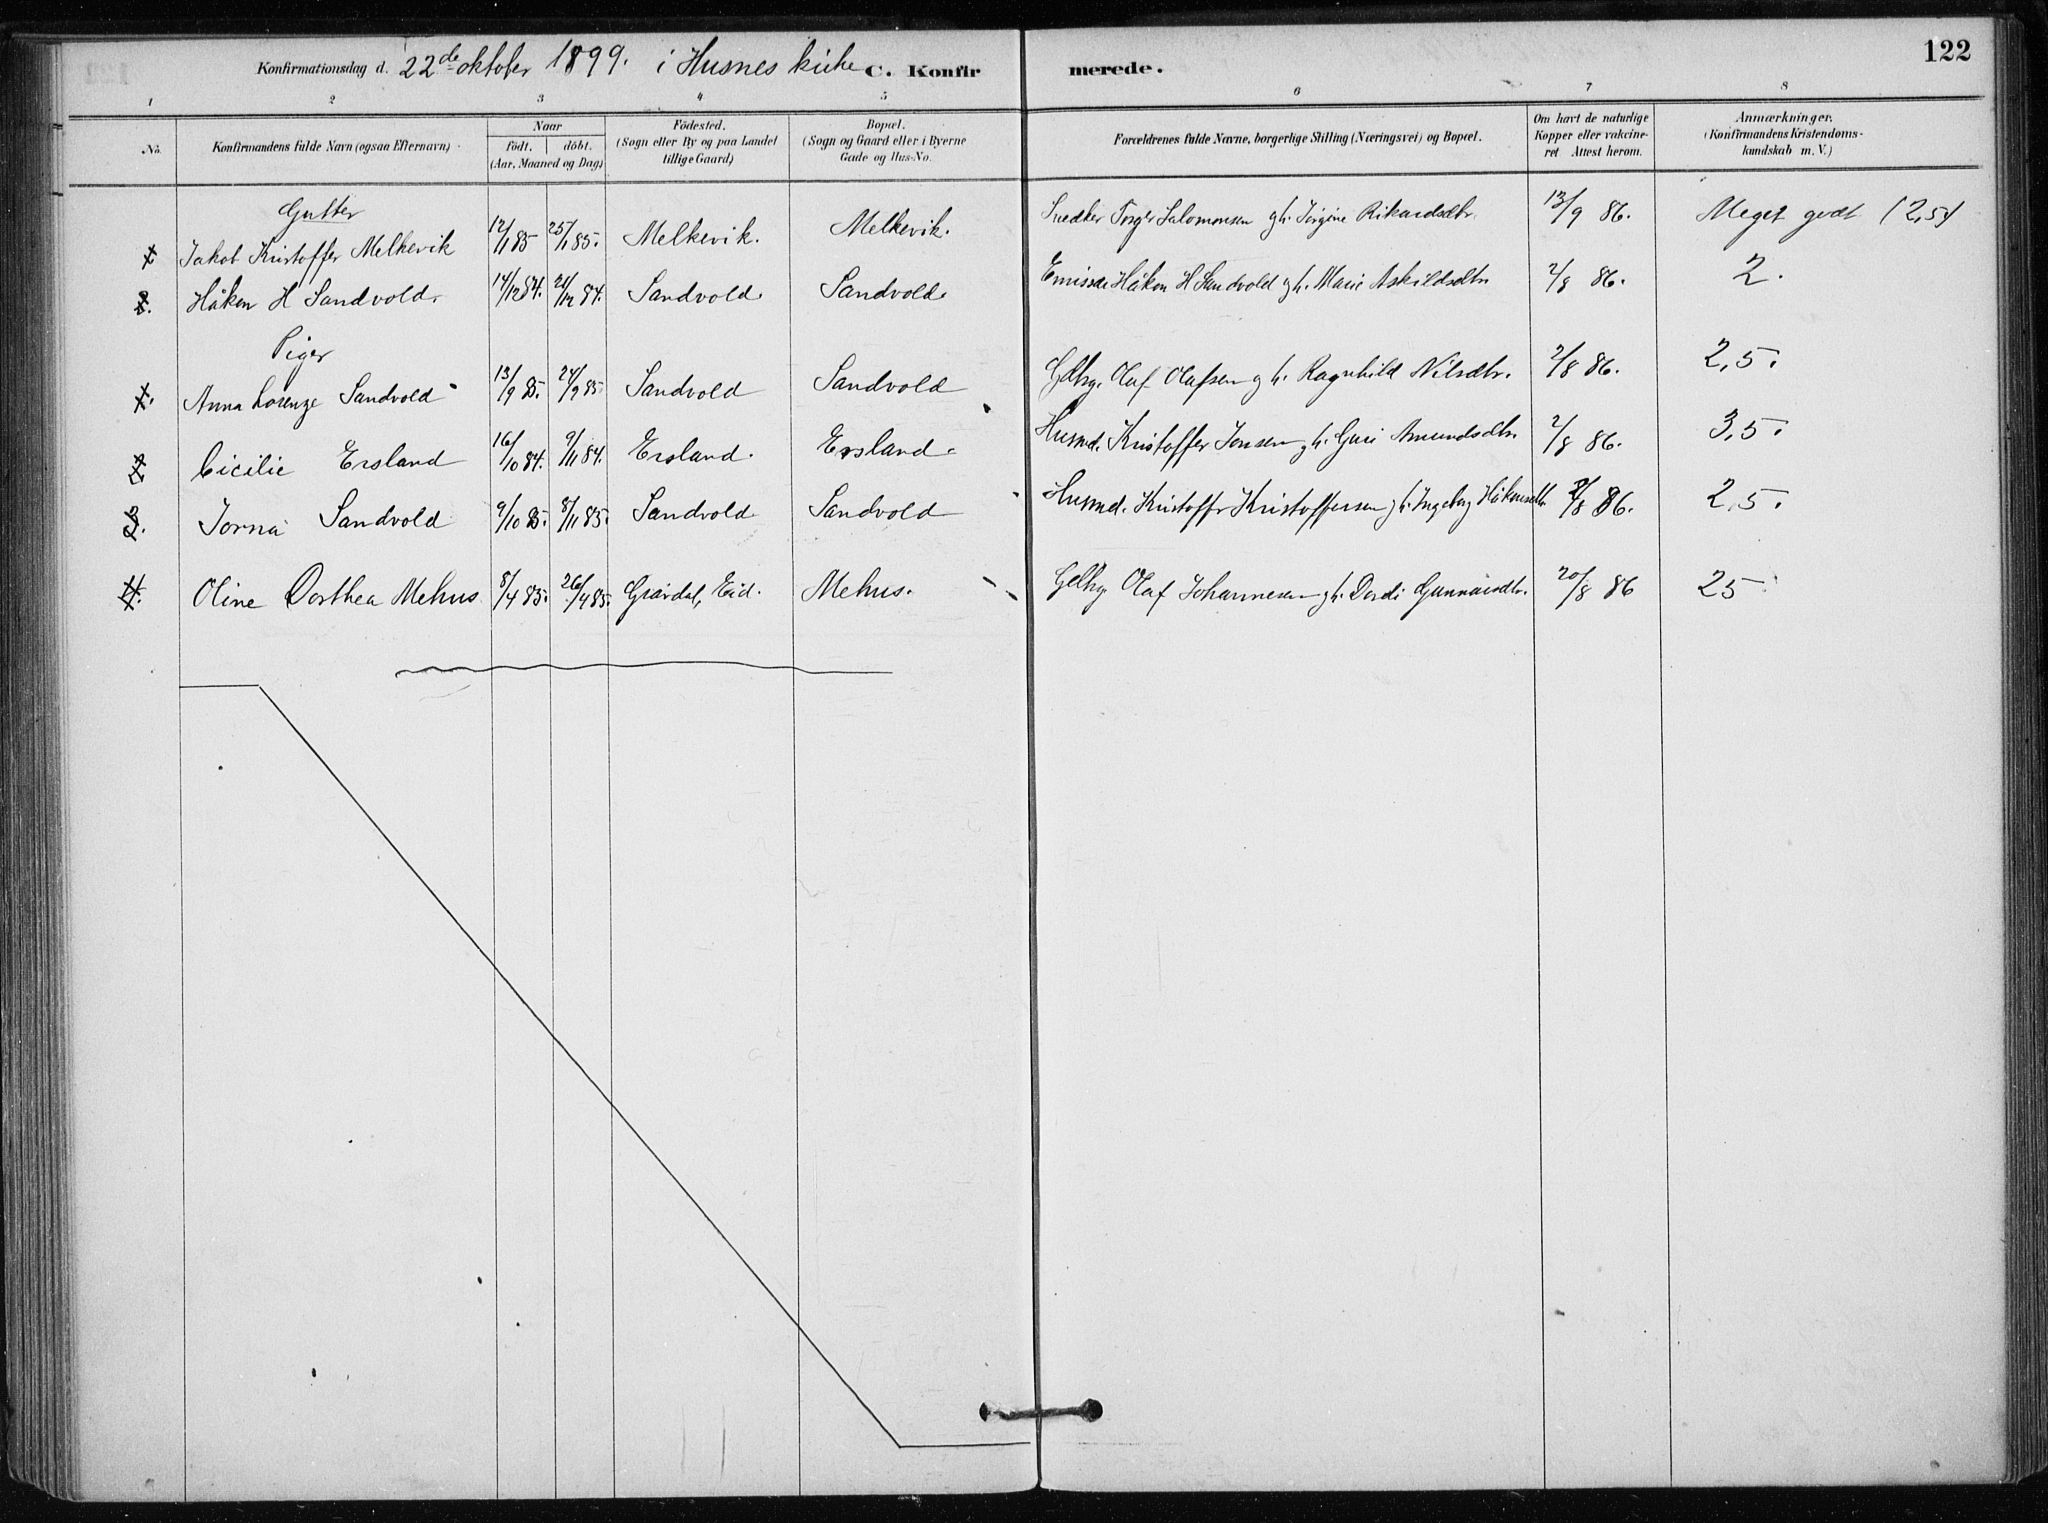 Konfirmationsdag d. 22de oktober 1899. i Husnes kirke C. Konfirmerede. 122
1 2 3 4 5 6 7 8
No. Konfirmandens fulde Navn (ogsaa Efternavn) Naar födt. döbt. (Aar, Maaned og Dag) Födested. (Sogn eller By og paa Landet tillige Gaard) Bopæl. (Sogn og Gaard eller i Byerne Gade og Hus-No. Forældrenes fulde Navne, borgerlige Stilling (Næringsvei) og Bopæl. Om havt de naturlige Kopper eller vakcineret Attest herom. Anmærkninger. (Konfirmandens Kristendomskundskab m. V.)
Gutter
1. Jakob Kristoffer Melkevik 12/1 85 25/1 85. Melkevik. Melkevik. Snedker Torger Salomonsen gh. Jörgine Rikardsdtr. 13/9 86. Meget godt (2,5)
2. Håken H Sandvold. 14/12 84. 21/12 84. Sandvold. Sandvold. Emissær Håkon H Sandvold gh. Marie Askildsdtr 2/8 86. 2.
Piger
1. Anna Lorenze Sandvold 13/9 85. 27/9 85. Sandvold Sandvold Gdbg. Olaf Olafsen gh. Ragnhild Nilsdtr. 2/8 86. 2,5.
2. Cicilie Ersland 16/10 84. 9/11 84. Ersland. Ersland. Husmd. Kristoffer Jonsen gh. Guri Amundsdtr 2/8 86. 3,5.
3. Jorna Sandvold 9/10 85. 8/11 85. Sandvold Sandvold Husmd. Kristoffr Kristoffersen gh. Ingebrg Håkensdtr 2/8 86. 2,5.
4. Oline Dorthea Mehus 8/4 85. 26/4 85. Eid. Mehus. Gdbg. Olaf Johannesen gh. Dordi Gunnarsdtr. 20/8 86 25